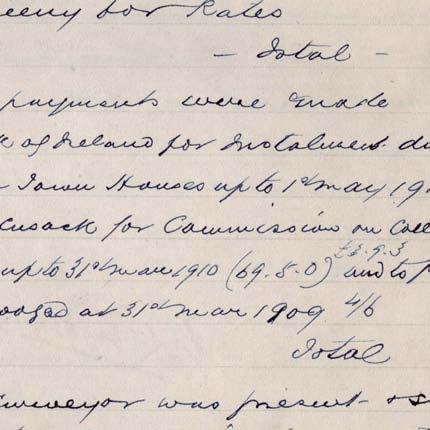 for Rates
- Total -
payments were made
k of Ireland for Instalment du
Town Houses up to 1st May 19
Cusack for Commission on Coll
£3.9.3
up to 31st Mar 1910 (69.5.0) and to p
at 31st Mar 1909 4/6
Total
Surveyor was present &